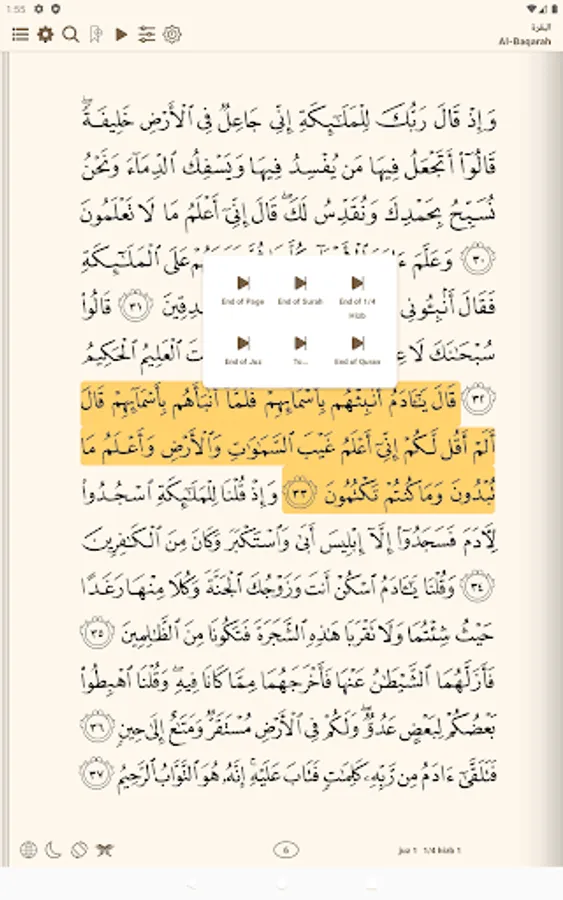 1:55
البقرة
Al-Baqarah
وَإِذْ قَالَ رَبُّكَ لِلْمَلَـٰٓئِكَةِ إِنِّى جَاعِلٌ فِى ٱلْأَرْضِ خَلِيفَةً ۖ
قَالُوٓا۟ أَتَجْعَلُ فِيهَا مَن يُفْسِدُ فِيهَا وَيَسْفِكُ ٱلدِّمَآءَ وَنَحْنُ
نُسَبِّحُ بِحَمْدِكَ وَنُقَدِّسُ لَكَ ۖ قَالَ إِنِّىٓ أَعْلَمُ مَا لَا تَعْلَمُونَ
٣٠ وَعَلَّمَ عَلَى ٱلْمَلَـٰٓئِكَةِ
فَقَالَ أَنۢبِـُٔونِى ٣١ قَالُوا۟
End of Page
End of Surah
End of 1/4 Hizb
End of Juz
To...
End of Quran
سُبْحَـٰنَكَ لَا ٱلْعَلِيمُ ٱلْحَكِيمُ
٣٢ قَالَ يَـٰٓـَٔادَمُ أَنۢبِئْهُم بِأَسْمَآئِهِمْ ۖ فَلَمَّآ أَنۢبَأَهُم بِأَسْمَآئِهِمْ قَالَ
أَلَمْ أَقُل لَّكُمْ إِنِّىٓ أَعْلَمُ غَيْبَ ٱلسَّمَـٰوَٰتِ وَٱلْأَرْضِ وَأَعْلَمُ مَا
تُبْدُونَ وَمَا كُنتُمْ تَكْتُمُونَ ٣٣ وَإِذْ قُلْنَا لِلْمَلَـٰٓئِكَةِ ٱسْجُدُوا۟
لِـَٔادَمَ فَسَجَدُوٓا۟ إِلَّآ إِبْلِيسَ أَبَىٰ وَٱسْتَكْبَرَ وَكَانَ مِنَ ٱلْكَـٰفِرِينَ
٣٤ وَقُلْنَا يَـٰٓـَٔادَمُ ٱسْكُنْ أَنتَ وَزَوْجُكَ ٱلْجَنَّةَ وَكُلَا مِنْهَا رَغَدًا
حَيْثُ شِئْتُمَا وَلَا تَقْرَبَا هَـٰذِهِ ٱلشَّجَرَةَ فَتَكُونَا مِنَ ٱلظَّـٰلِمِينَ ٣٥
فَأَزَلَّهُمَا ٱلشَّيْطَـٰنُ عَنْهَا فَأَخْرَجَهُمَا مِمَّا كَانَا فِيهِ ۖ وَقُلْنَا ٱهْبِطُوا۟
بَعْضُكُمْ لِبَعْضٍ عَدُوٌّ ۖ وَلَكُمْ فِى ٱلْأَرْضِ مُسْتَقَرٌّ وَمَتَـٰعٌ إِلَىٰ حِينٍ ٣٦
فَتَلَقَّىٰٓ ءَادَمُ مِن رَّبِّهِۦ كَلِمَـٰتٍ فَتَابَ عَلَيْهِ ۚ إِنَّهُۥ هُوَ ٱلتَّوَّابُ ٱلرَّحِيمُ ٣٧
6
juz 1 1/4 hizb 1